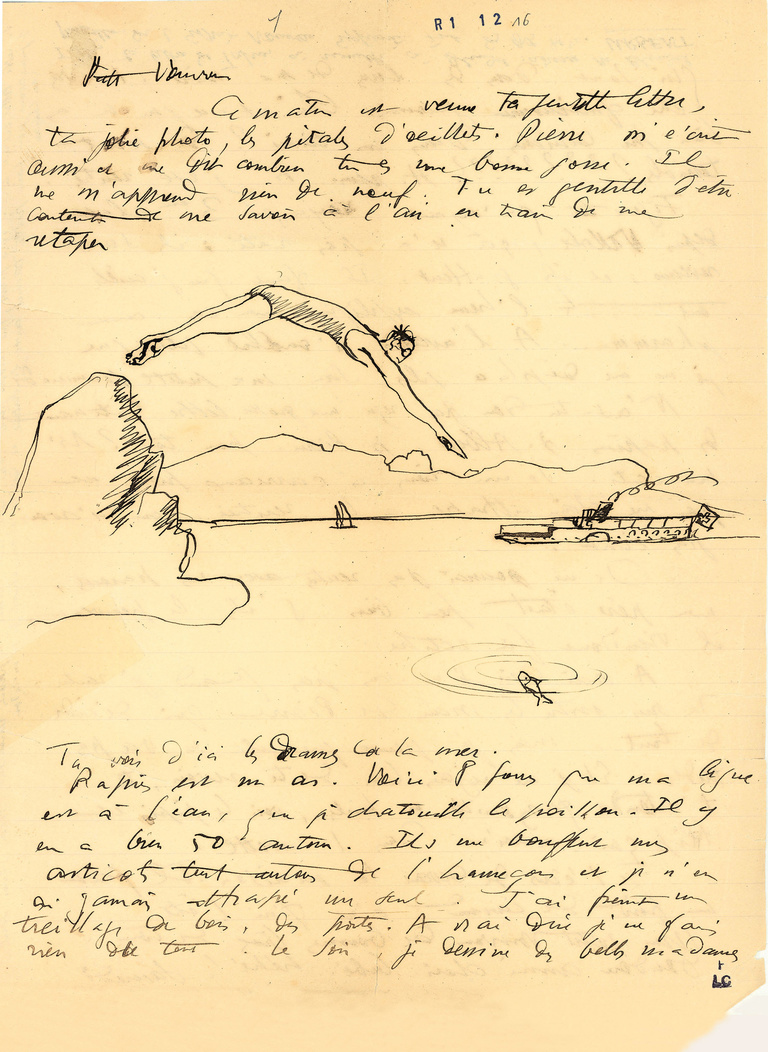 1
R1 12 16
Petit Vonvon
Ce matin est venue ta gentille lettre,
ta jolie photo, les pétales d'œillets. Pierre m'écrit
aussi et me dit combien tu es une bonne gosse. Il
ne m'apprend rien de neuf. Tu es gentille d'être
contente de me savoir à l'air en train de me
retaper
Tu vois d'ici les drames de la mer.
est un as. Voici 8 jours que ma ligne
est à l'eau, que je chatouille le poisson. Il y
en a bien 50 autour. Ils me bouffent mes
asticots tout autour de l'hameçon et je n'en
ai jamais attrapé un seul. J'ai peint un
treillage de bois, des portes. A vrai dire je ne fais
rien du tout. Le soir, je dessine des belles madames
LC